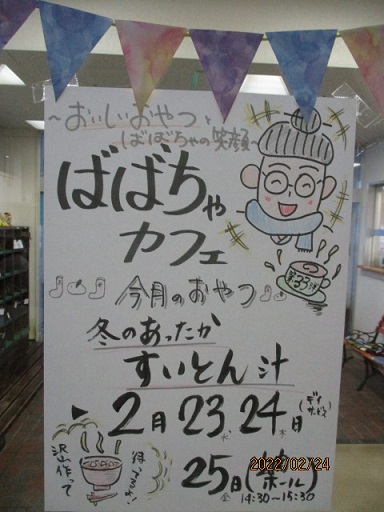 ～おいしいおやつと
ばばちゃの笑顔～
ばばちゃ
カフェ
第33弾
今月のおやつ
冬のあったか
すいとん汁
▶2月23水24木日(デイサービス)
25日金(楽ホール)
14:30~15:30
沢山作って
待ってるよ!
2022/02/24